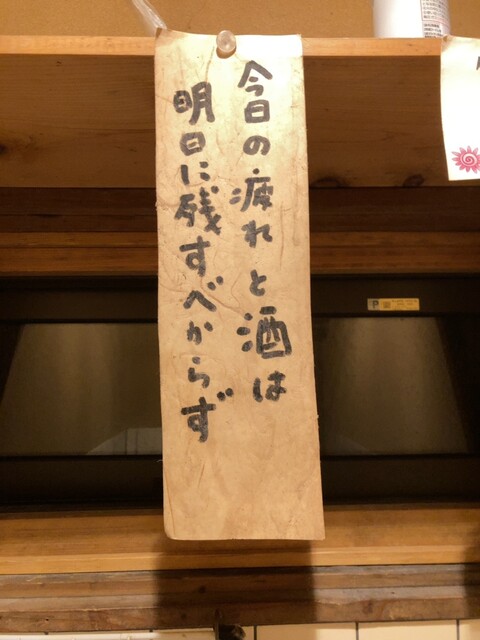 今日の疲れと酒は
明日に残すべからず
P